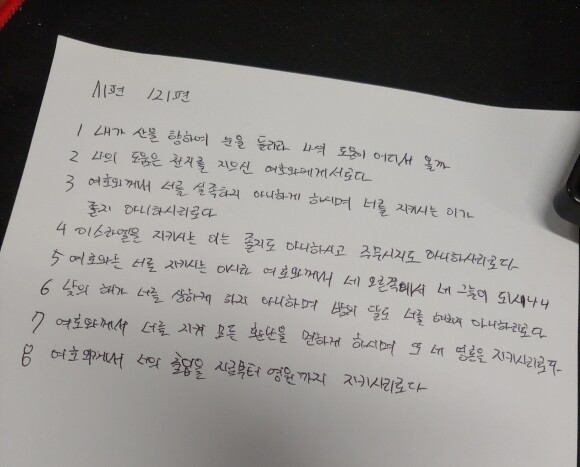 시편 121편
1 내가 산을 향하여 눈을 들리라 나의 도움이 어디서 올까
2 나의 도움은 천지를 지으신 여호와에게서로다
3 여호와께서 너를 실족하지 아니하게 하시며 너를 지키시는 이가
졸지 아니하시리로다
4 이스라엘을 지키시는 이는 졸지도 아니하시고 주무시지도 아니하시리로다
5 여호와는 너를 지키시는 이시라 여호와께서 네 오른쪽에서 네 그늘이 되시나니
6 낮의 해가 너를 상하게 하지 아니하며 밤의 달도 너를 해치지 아니하리로다
7 여호와께서 너를 지켜 모든 환난을 면하게 하시며 또 네 영혼을 지키시리로다
8 여호와께서 너의 출입을 지금부터 영원까지 지키시리로다